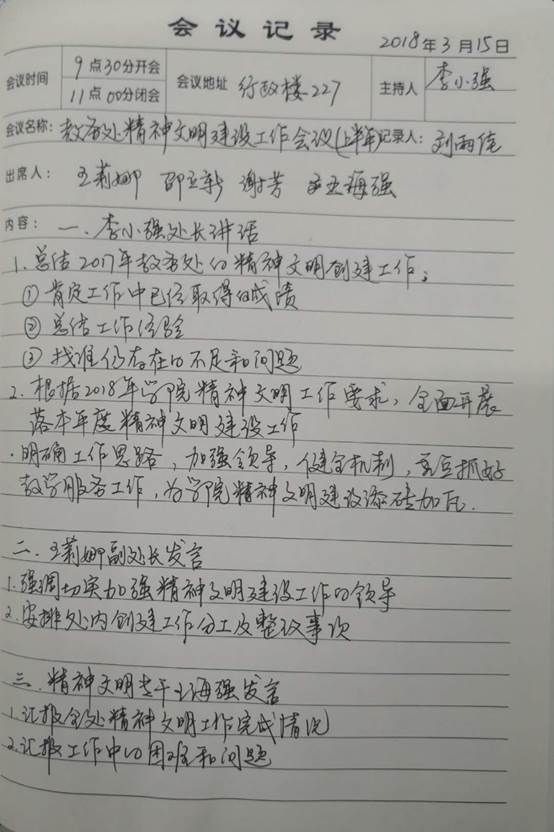 会议记录
2018年3月15日
会议时间 9点30分开会 11点00分闭会 会议地址 行政楼227 主持人 李小强
会议名称：教务处精神文明建设工作会议（上半年） 记录人：刘雨佳
出席人：王莉娜 邵立新 谢芳 王海强
内容：一、李小强处长讲话
1、总结2017年教务处的精神文明创建工作；
①肯定工作中已经取得的成绩
②总结工作经验
③找准仍存在的不足和问题
2、根据2018年学院精神文明工作要求，全面开展
落本年度精神文明建设工作
·明确工作思路，加强领导，健全机制，抓好
教学服务工作，为学院精神文明建设添砖加瓦.
二、王莉娜副处长发言
1、强调切实加强精神文明建设工作的领导
2、安排处内创建工作分工及整改事项
三、精神文明干海强发言
1、汇报全处精神文明工作完成情况
2、汇报工作中的困难和问题